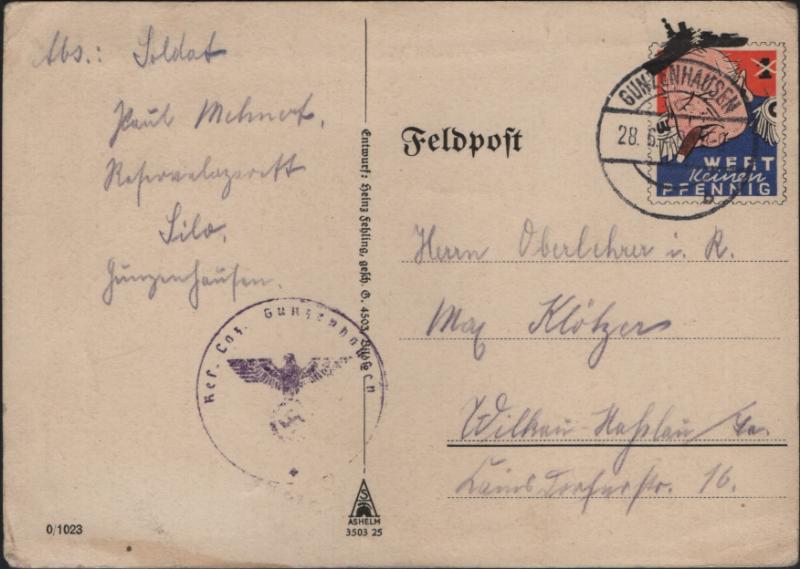 Abs.: Soldat
Paul Mehnert,
Reservelazarett
Silo,
Gunzenhausen.
Res. Laz. Gunzenhausen
0/1023
Entwurf: Heinz Fehling, gesch. G. 4503, Bildst C.H
ASHELM
3503 25
Feldpost
GUNZENHAUSEN
28. 6.
b
WERT
keinen
PFENNIG
Herrn Oberlehrer i. R.
Max Klötzer
Wilkau-Haßlau / Sa.
16.